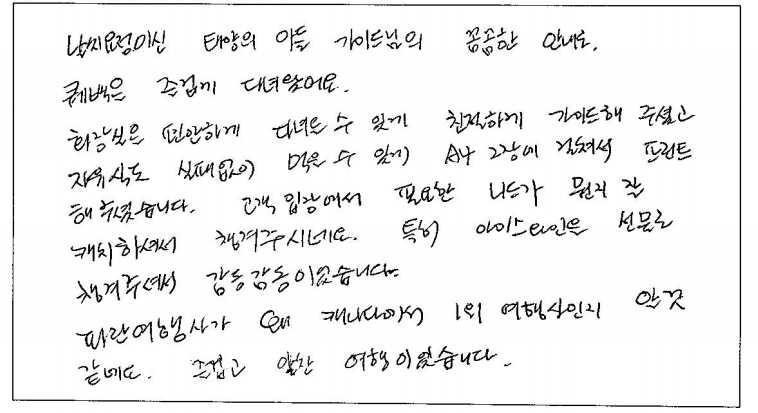 납치요정이신 태양의 아들 가이드님의 꼼꼼한 안내로,
퀘벡은 즐겁게 다녀왔어요.
화장실은 편안하게 다녀올 수 있게 친절하게 가이드해 주셨고
자유식도 실패없이 먹을 수 있게 A4 2장에 걸쳐서 프린트
해 주셨습니다. 고객 입장에서 필요한 니드가 뭔지 잘
캐치하셔서 챙겨주시네요. 특히 아이스와인을 선물로
챙겨주셔서 감동감동이었습니다.
파란여행사가 왜 캐나다에서 1위 여행사인지 알것
같네요. 즐겁고 알찬 여행이었습니다.